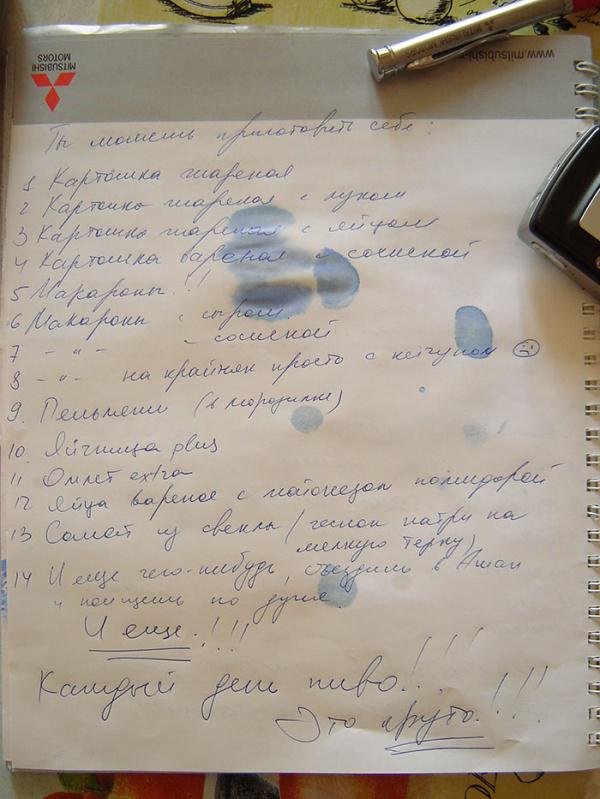 MITSUBISHI
MOTORS
www.mitsubishi-
MITSUBISHI MOTORS
Ты можешь приготовить себе:
1 Картошка жареная
2 Картошка жареная с луком
3 Картошка жареная с яйцом
4 Картошка вареная с сосиской
5 Макароны!!
6 Макароны с сыром
7 - " - с сосиской
8 - " - на крайняк просто с кетчупом ☹
9. Пельмени (в морозилке)
10. Яйчница plus
11 Омлет extra
12 Яйца вареное с майонезом помидорой
13 Салат из свеклы (чеснок натри на
мелкую терку)
14 И еще чего-нибудь, съездишь в Ашан
и поищешь по душе.
И еще!!!!
Каждый день пиво!...!!!
Это круто!!!!